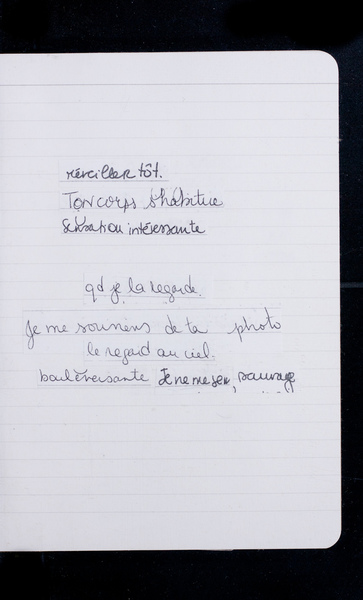 réveiller tôt.
Ton corps s'habitue
Sensation intéressante
qd je la regarde.
Je me souviens de ta photo
le regard au ciel.
bouleversante Je ne me sen, sauvage